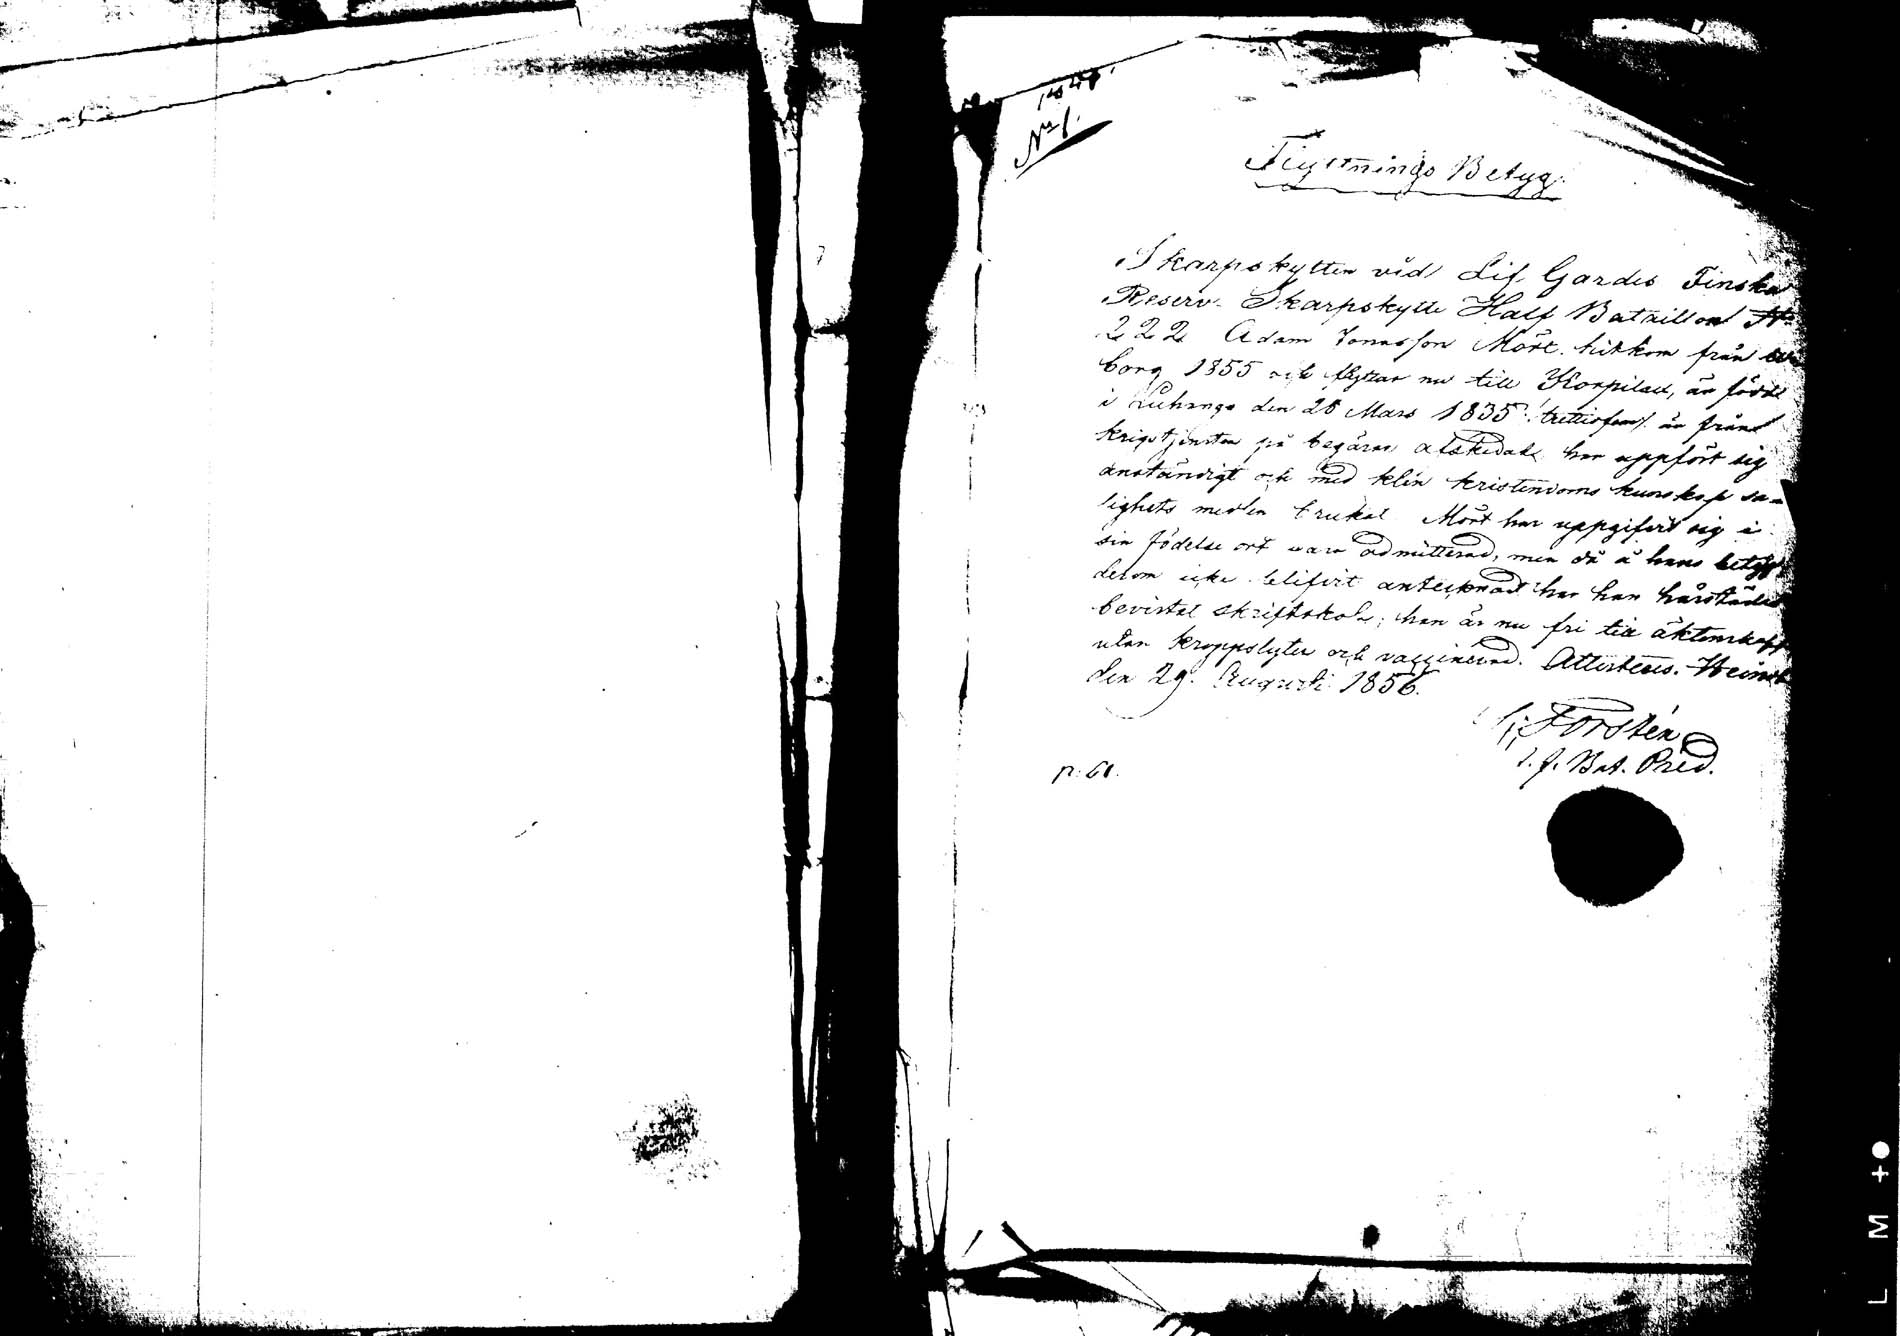 No 1.
Flyttnings Betyg.
Skarpskytten vid Lif Gardes Finska
Reserv Skarpskytte Half Bataillon No
222 Adam Jonasson Mört, hitkom från
borg 1855 och flyttar nu till Korpilax, är född
i Luhango den 28 Mars 1835 /: trettiofem :/ är från
krigstjensten på begäran afskedad har uppfört sig
anständigt och med klén kristendoms kunskap sa-
lighets medlen brukat. Mört har uppgifvit sig i
sin födelse ort vara admitterad, men då å hans betyg
derom icke blifvit antecknadt har han härstädes
bevistat skriftskola; han är nu fri till äktenskap
utan kroppslyten och vaccinerad. Attesteras. Heinola
den 29. Augusti 1856.
Forstén
t. f. Bat. Pred.
p. 61.
L M